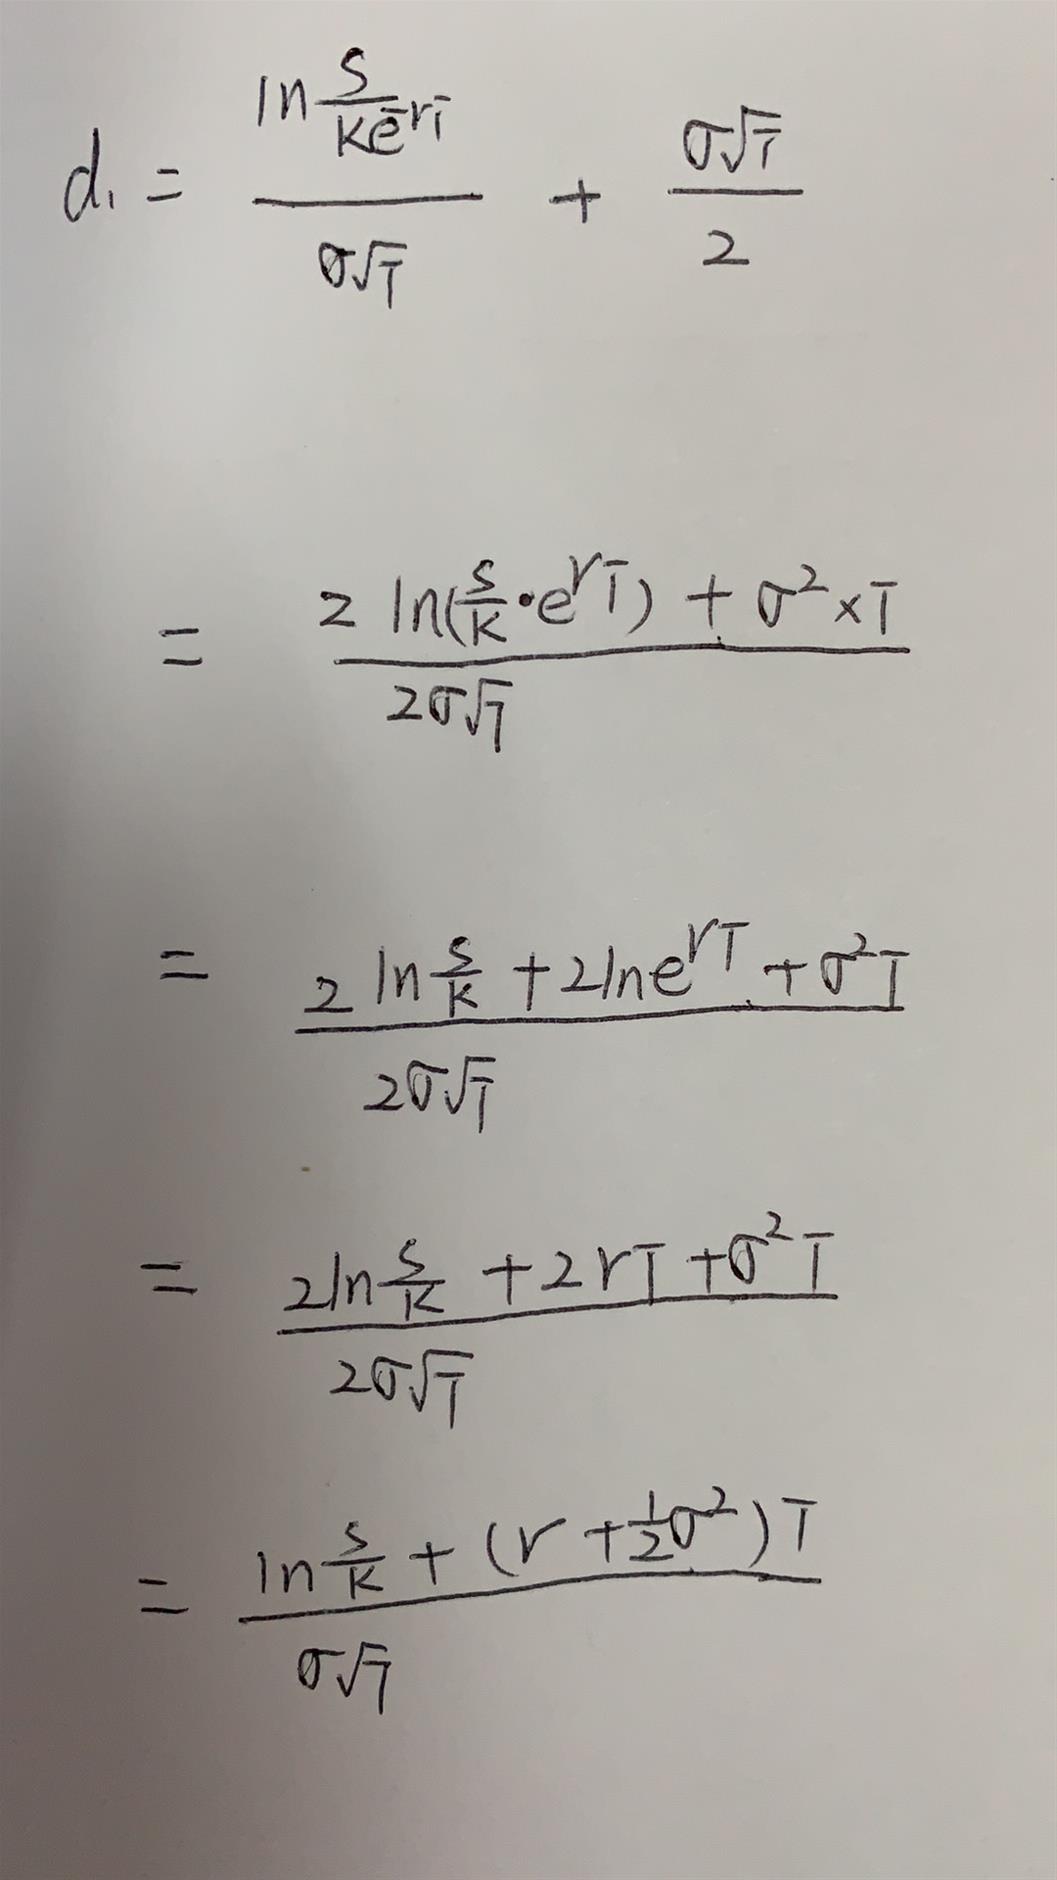 d₁ = ln S/(Ke^-rT) / σ√T + σ√T / 2
= 2 ln(S/K · e^rT) + σ² × T / 2σ√T
= 2 ln S/K + 2 ln e^rT + σ²T / 2σ√T
= 2 ln S/K + 2rT + σ²T / 2σ√T
= ln S/K + (r + 1/2 σ²)T / σ√T